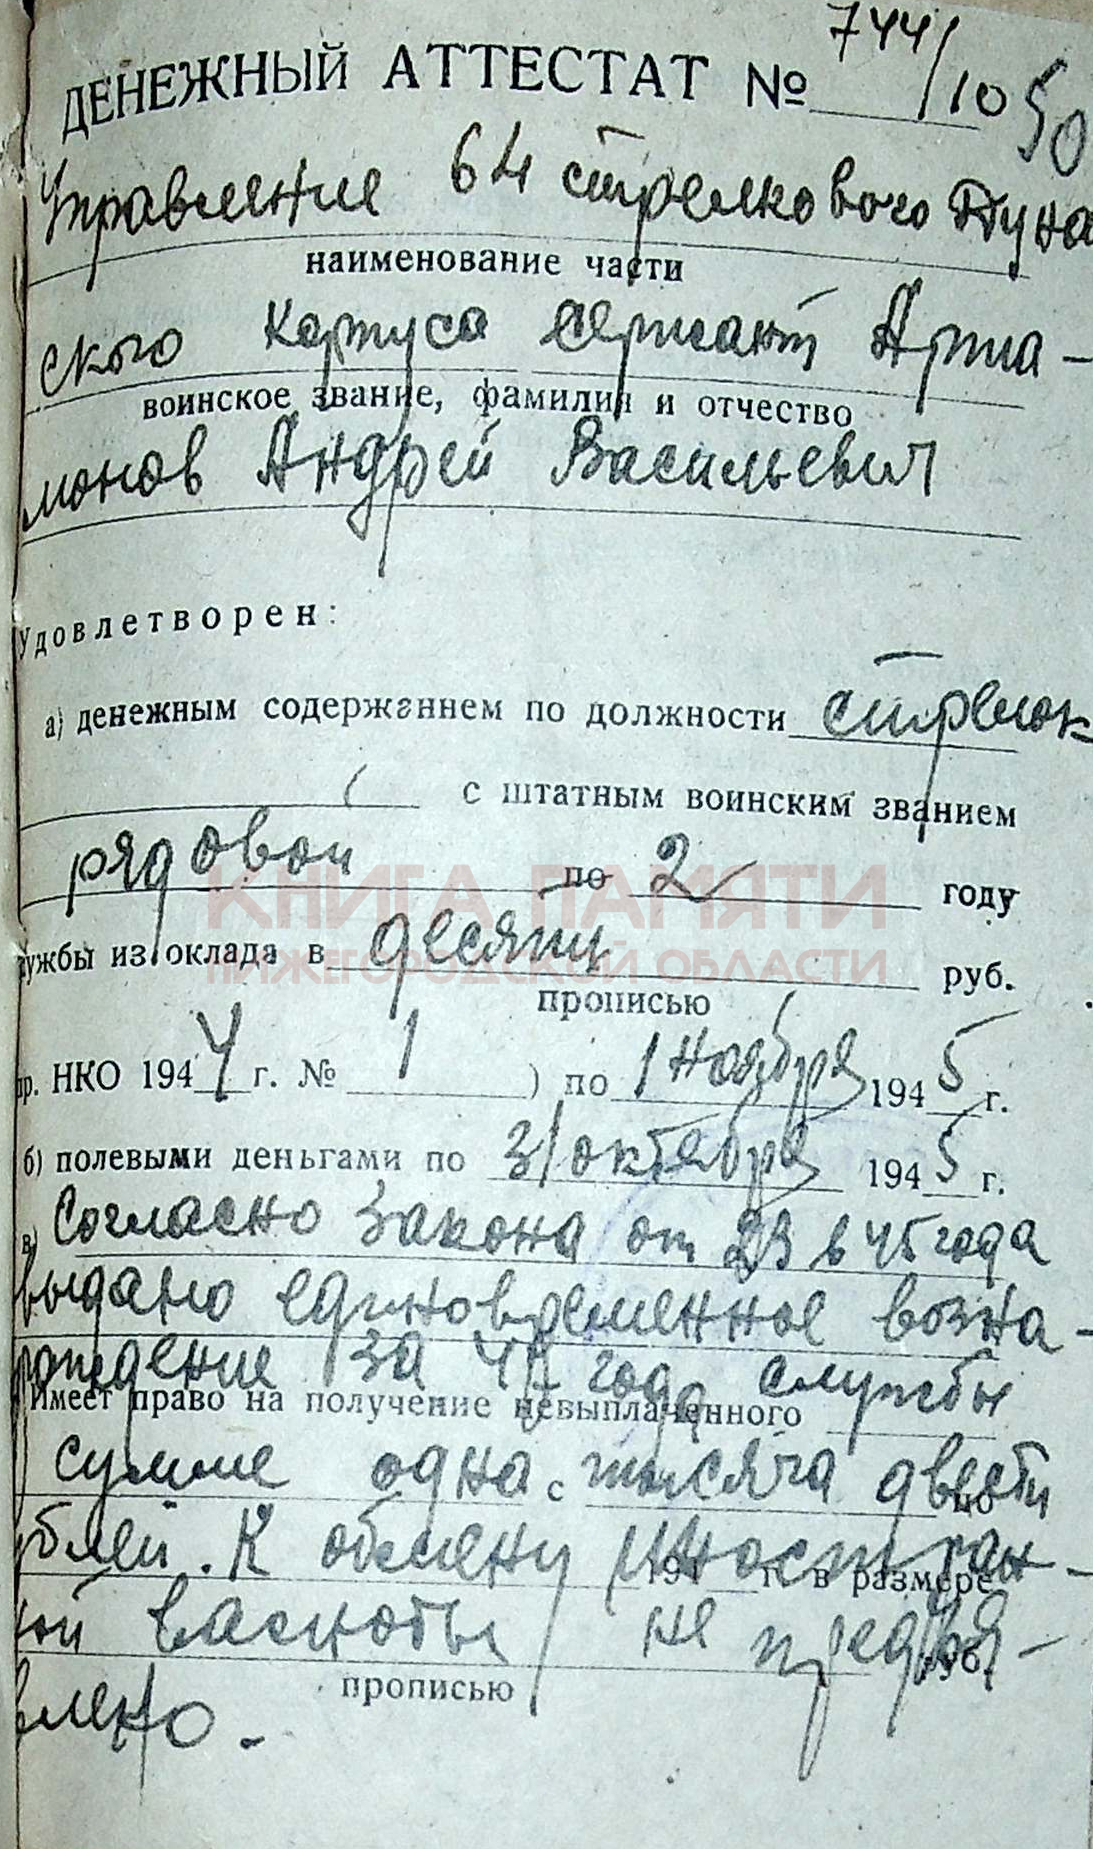 ДЕНЕЖНЫЙ АТТЕСТАТ № 744/10 50
Управление 64 стрелкового Дуна
наименование части
ского корпуса сержант Арта-
воинское звание, фамилия и отчество
монов Андрей Васильевич
Удовлетворен:
а) денежным содержанием по должности стрелок
с штатным воинским званием
рядовой по 2 году
ужбы из оклада в десять руб.
прописью
пр. НКО 1944 г. № 1 ) по 1 ноября 1945 г.
б) полевыми деньгами по 31 октября 1945 г.
в) Согласно Закона от 23 6 45 года
выдано единовременное возна-
раждение за 4 года службы
Имеет право на получение невыплаченного
сумме одна тысяча двести
с по
ублей. К обмену иностран-
194 г. в размере
ной валюты не предъя-
руб.
прописью
влено.
КНИГА ПАМЯТИ
НИЖЕГОРОДСКОЙ ОБЛАСТИ